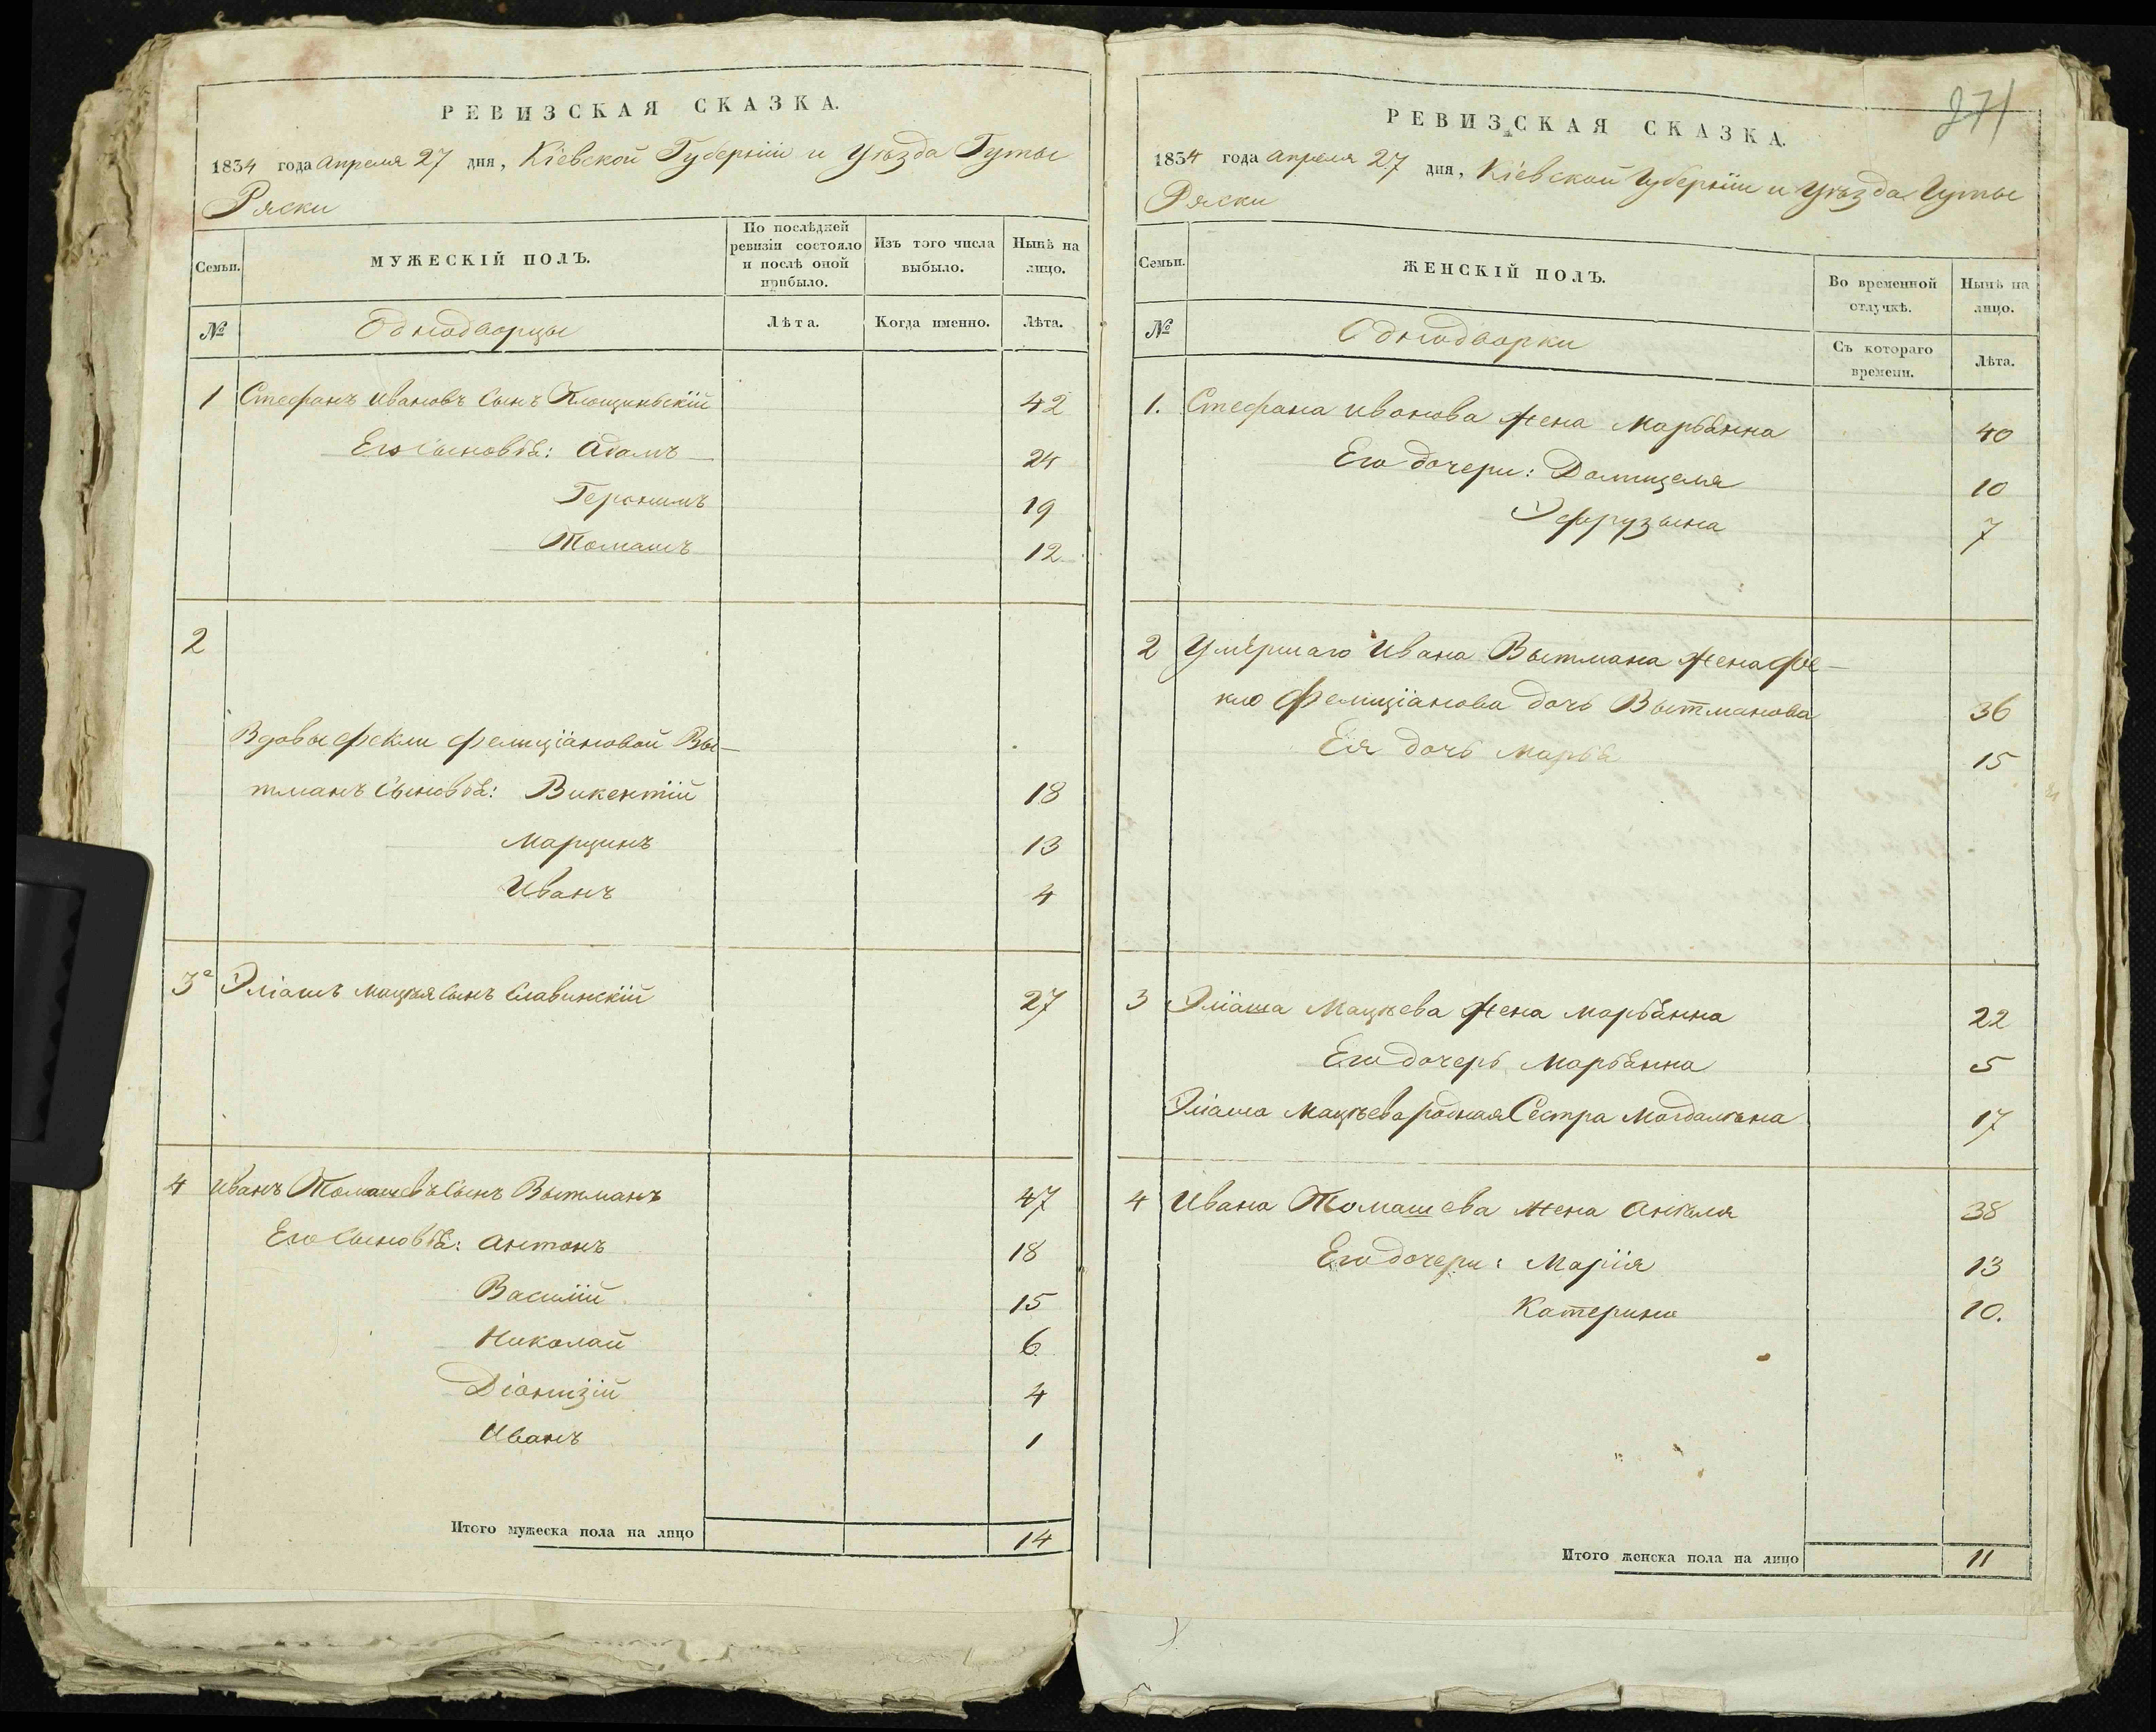 РЕВИЗСКАЯ СКАЗКА.
1834 года Апреля 27 дня, Кіевской Губерніи и Уѣзда Гуты
Ряски
Семьи.
МУЖЕСКІЙ ПОЛЪ.
По послѣдней ревизіи состояло и послѣ оной прибыло.
Изъ того числа выбыло.
Нынѣ на лицо.
№
Однодворцы
Лѣта.
Когда именно.
Лѣта.
1 Стефанъ Ивановъ Сынъ Площиньскій 42
Его Сыновья: Адамъ 24
Геронимъ 19
Томашъ 12
2
Вдовы Фекли Фелиціановой Вы-
тманъ Сыновья: Викентій 18
Марцинъ 13
Иванъ 4
3 Эліашъ Мацѣя Сынъ Славинскій 27
4 Иванъ Томашевъ Сынъ Вытманъ 47
Его Сыновья: Антонъ 18
Василій 15
Николай 6
Діонизій 4
Иванъ 1
Итого мужеска пола на лицо 14
271
РЕВИЗСКАЯ СКАЗКА.
1834 года Апреля 27 дня, Кіевской Губерніи и Уѣзда Гуты
Ряски
Семьи.
ЖЕНСКІЙ ПОЛЪ.
Во временной отлучкѣ.
Нынѣ на лицо.
№
Однодворки
Съ котораго времени.
Лѣта.
1. Стефана Иванова жена Марьянна 40
Его дочери: Домицеля 10
Эфрузына 7
2 Умершаго Ивана Вытмана жена Фе-
кла Фелиціанова дочь Вытманова 36
Ея дочь Марья 15
3 Эліаша Мацѣева жена Марьянна 22
Его дочерь Марьянна 5
Эліаша Мацѣева родная Сестра Магдалѣна 17
4 Ивана Томашева жена Анѣля 38
Его дочери: Марія 13
Катерина 10.
Итого женска пола на лицо 11